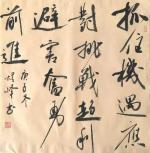 抓住機遇應
對挑戰趨利
避害奮勇
前進
庚子冬
書